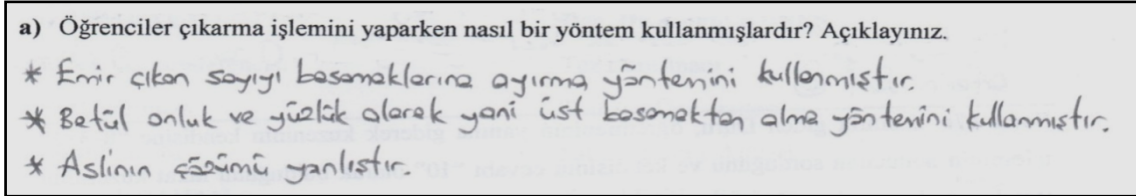 a) Öğrenciler çıkarma işlemini yaparken nasıl bir yöntem kullanmışlardır? Açıklayınız.
* Emir çıkan sayıyı basamaklarına ayırma yöntemini kullanmıştır.
* Betül onluk ve yüzlük alarak yani üst basamaktan alma yöntemini kullanmıştır.
* Aslının çözümü yanlıştır.